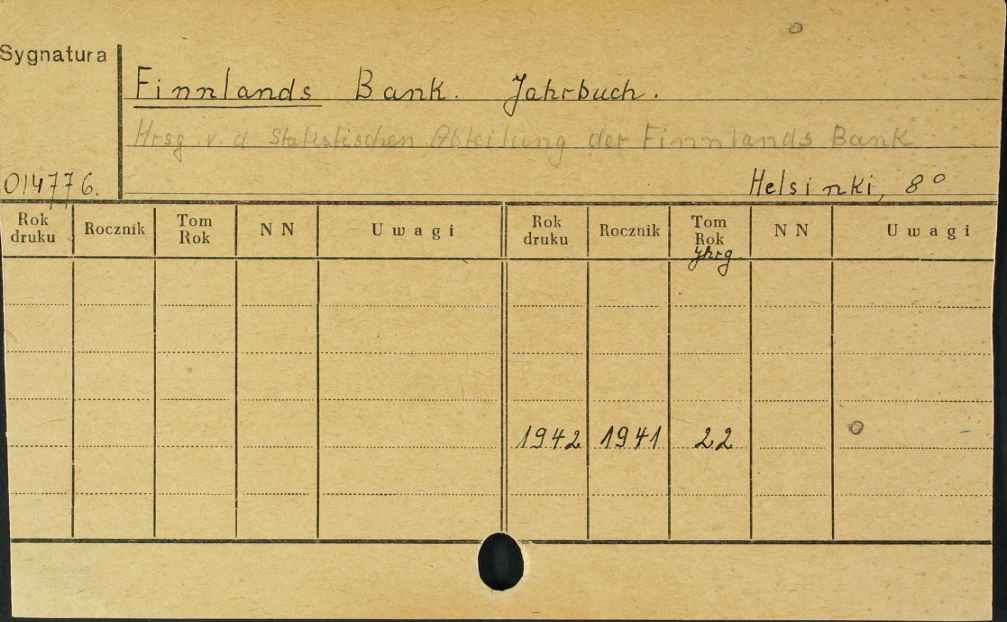 Sygnatura
Finnlands Bank. Jahrbuch.
Hrsg. v. d. Statistischen Abteilung der Finnlands Bank
014776.
Helsinki, 8°
Rok druku Rocznik Tom Rok NN Uwagi Rok druku Rocznik Tom Rok NN Uwagi
Jhrg
1942 1941 22 o